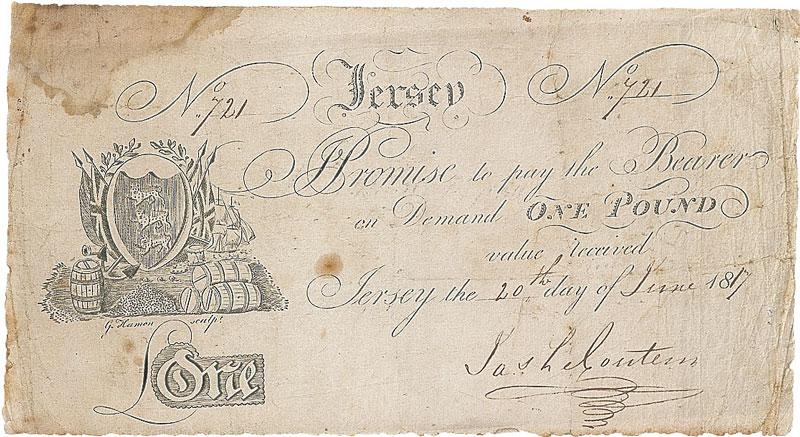 No 721 Jersey No 721
I Promise to pay the Bearer
on Demand ONE POUND
value received
Jersey the 20th day of June 1817
G. Hamon sculpt.
£One
Jas Le Couteur